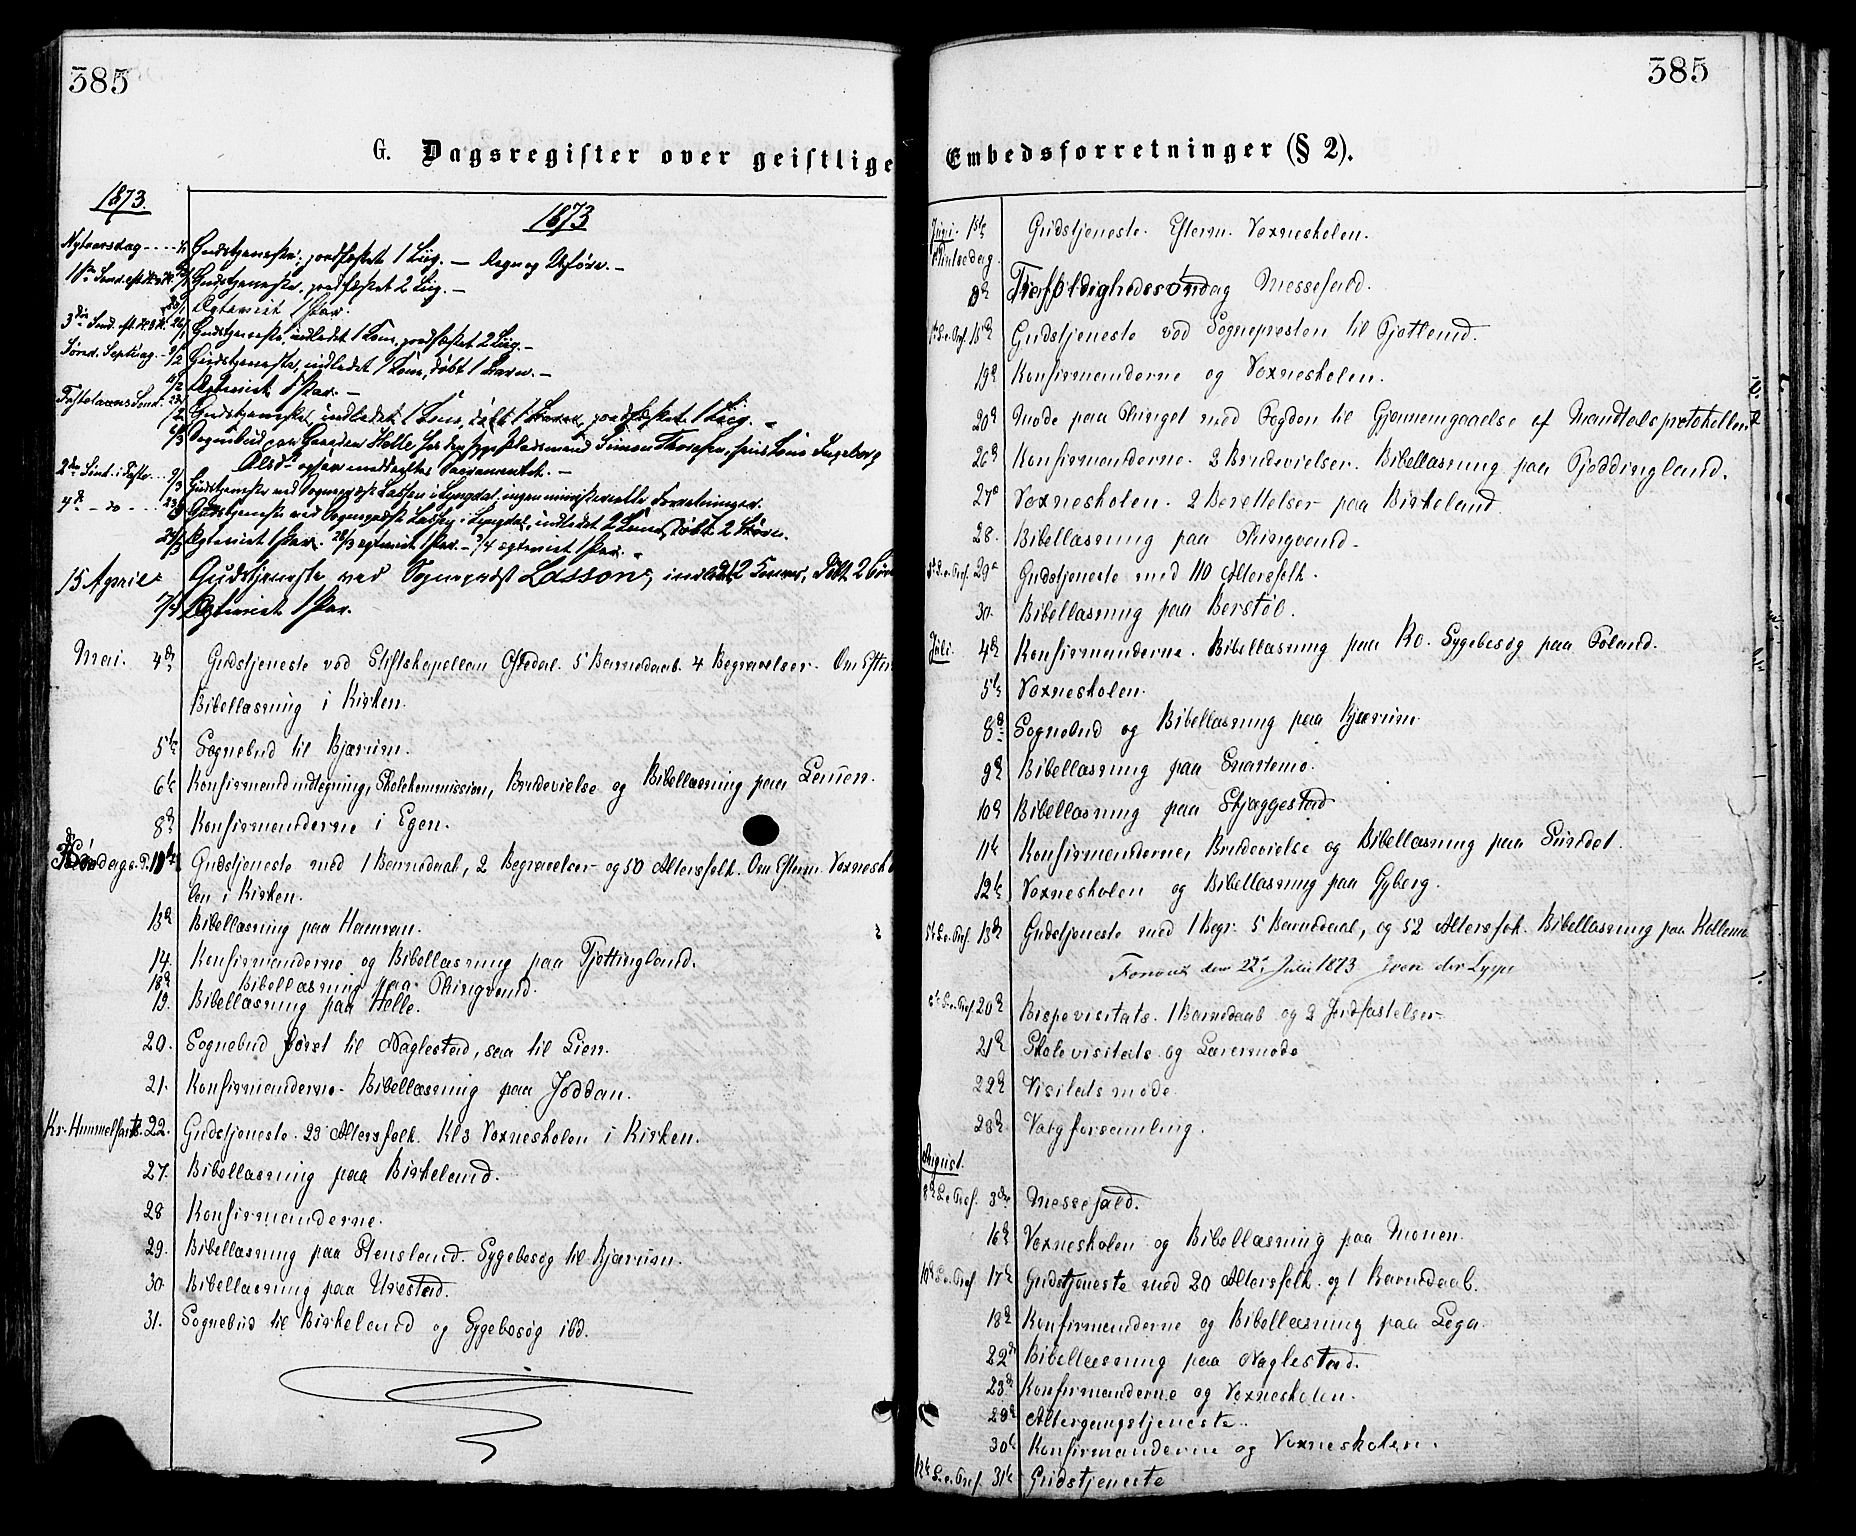 385
G. Dagsregister over geistlige
1873.
1873
Nytaarsdag - - - - 1/1 Gudstjeneste; jordfæstet 1 Liig. —
Gudstjeneste, jordfæstet 2 Liig. —
Ægteviet 1 Par.
Gudstjeneste, indledet 1 Kone, jordfæstet 2 Liig. —
Gudstjeneste, indledet 1 Kone, døbt 1 Barn. —
Ægteviet 1 Par. —
Fastelavns Sønd. 23/2 Gudstjeneste, indledet 1 Kone, døbt 1 Barn, jordfæstet 1 Liig. —
Sognebud paa Gaarden Helle
2den Sønd. i Faste 9/3 Gudstjeneste ved Sognepræst Lassen i Lyngdal, ingen ministerielle Forretninger.
4de - do - - - 23/3 Gudstjeneste ved Sognepræst Lassen i Lyngdal, indledet 2 Koner, døbt 2 Børn.
Ægteviet 1 Par. 28/3 ægteviet 1 Par. - 3/4 ægteviet 1 Par. -
15 April Gudstjeneste ved Sognepræst Lassen, indledet 2 Koner, døbt 2 Børn
Ægteviet 1 Par.
Mai. 4de Gudstjeneste ved Stiftskapellan Oftedal. 5 Barnedaab. 4 Begravelser. Om Efterm
Bibellæsning i Kirken.
5te Sognebud til Bjærum.
6te Konfirmandindtegning, Skolekommission, Brudevielse og Bibellæsning paa
8de Konfirmanderne i Egen.
11te Gudstjeneste med 1 Barnedaab, 2 Begravelser og 50 Altersfolk. Om Efterm. Voxnesko
len i Kirken.
13de Bibellæsning paa Hamran.
14. Konfirmanderne og Bibellæsning paa Tjottingland.
18de Bibellæsning paa Thingvend.
19. Bibellæsning paa Helle.
20. Sognebud først til Naglestad, saa til Lien.
21. Konfirmanderne. Bibellæsning paa Joddan.
Kr. Himmelfartsd. 22. Gudstjeneste. 23 Altersfolk. Kl 3 Voxneskolen i Kirken.
27. Bibellæsning paa Birkeland.
28 Konfirmanderne.
29. Bibellæsning paa Stensland. Sygebesøg til Bjærum.
30. Bibellæsning paa Urestad.
31. Sognebud til Birkeland og Sygebesøg ibd.
385
Embedsforretninger (§ 2).
Juni. 1ste Gudstjeneste. Efterm. Voxneskolen.
Pintsedag.
8de Trefoldighedssøndag Messefald.
1ste S. e. Tref. 15de Gudstjeneste ved Sognepresten til Fjotland.
19de Konfirmanderne og Voxneskolen.
20de Møde paa Thinget med Fogden til Gjennemgaaelse af Mandtalsprotokollen
26de Konfirmanderne. 2 Brudevielser. Bibellæsning paa Fjoddingland.
27de Voxneskolen. 2 Berettelser paa Birkeland.
28. Bibellæsning paa Thingvend.
3de S. e. Tref. 29de Gudstjeneste med 110 Altersfolk.
30. Bibellæsning paa Berstøl.
Juli. 4de Konfirmanderne. Bibellæsning paa Ro. Sygebesøg paa Foland.
5te Voxneskolen.
8de Sognebud og Bibellæsning paa Kjærum
9de Bibellæsning paa Snartemo.
10de Bibellæsning paa Skjeggestad
11te Konfirmanderne, Brudevielse og Bibellæsning paa Sundet.
12te Voxneskolen og Bibellæsning paa Gyberg.
5te S. e. Tref. 13de Gudstjeneste med 1 Begr. 5 Barnedaab, og 52 Altersfolk. Bibellæsning paa
Forevist den 22de Juli 1873
6te S. e. Tref. 20de Bispevisitats. 1 Barnedaab og 2 Jordfæstelser
21de Skolevisitats og Lærermøde
22de Visitatsmøde
23de Valgforsamling.
August.
8de S. e. Tref. 3die Messefald.
16de Voxneskolen og Bibellæsning paa Monen.
10de S. e. Tref 17de Gudstjeneste med 20 Altersfolk og 1 Barnedaab.
18de Konfirmanderne og Bibellæsning paa Lega.
22de Bibellæsning paa Naglestad.
23de Konfirmanderne og Voxneskolen.
29de Altergangstjeneste.
30te Konfirmanderne og Voxneskolen.
12te S. e. Tref. 31te Gudstjeneste